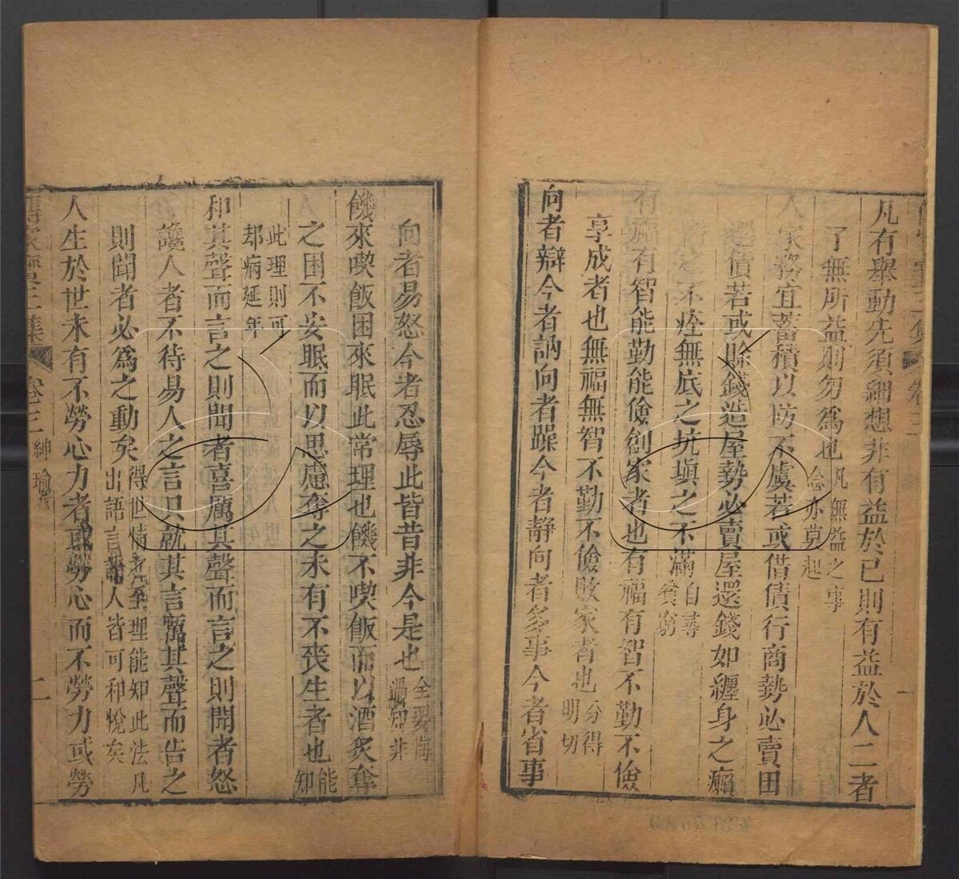 凡有舉動先須細想非有益於已則有益於人二者
了無所益則勿爲也凡無益之事念亦莫起
人家務宜蓄積以防不虞若或借債行商勢必賣田
還債若或賒錢造屋勢必賣屋還錢如纏身之癩
之不痊無底之坑塡之不滿自尋貧窮
有福有智能勤能儉創家者也有福有智不勤不儉
享成者也無福無智不勤不儉敗家者也分得明切
向者辯今者訥向者躁今者靜向者多事今者省事
向者易怒今者忍辱此皆昔非今是也全要悔過知非
饑來喫飯困來眠此常理也饑不喫飯而以酒炙奪
之困不安眠而以思慮奪之未有不喪生者也能知
此理則可却病延年
和其聲而言之則聞者喜厲其聲而言之則聞者怒
讒人者不待易人之言只就其言厲其聲而告之
則聞者必爲之動矣得世情之至理能知此法凡出語言諸人皆可和悅矣
人生於世未有不勞心力者或勞心而不勞力或勞
傳家寶二集 卷三 紳瑜 二